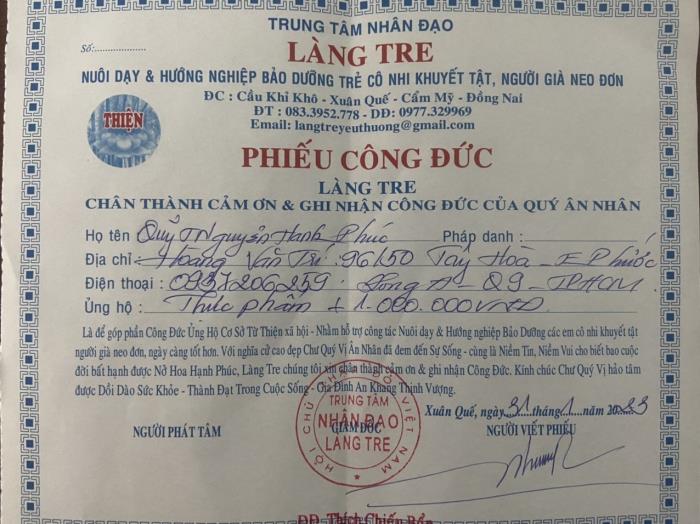 TRUNG TÂM NHÂN ĐẠO
Số:..................
LÀNG TRE
NUÔI DẠY & HƯỚNG NGHIỆP BẢO DƯỠNG TRẺ CÔ NHI KHUYẾT TẬT, NGƯỜI GIÀ NEO ĐƠN
ĐC : Cầu Khỉ Khô - Xuân Quế - Cẩm Mỹ - Đồng Nai
ĐT : 083.3952.778 - DĐ: 0977.329969
Email: langtreyeuthuong@gmail.com
THIỆN
PHIẾU CÔNG ĐỨC
LÀNG TRE
CHÂN THÀNH CẢM ƠN & GHI NHẬN CÔNG ĐỨC CỦA QUÝ ÂN NHÂN
Họ tên Quỹ TN Nguyễn Hạnh Phúc Pháp danh :
Địa chỉ Hoàng Văn Trí : 96/50 Tây Hoà - F Phước
Điện thoại : 0937206259 : Long A - Q9 - TPHCM
Ủng hộ : Thực phẩm + 1.000.000VNĐ
Là để góp phần Công Đức Ủng Hộ Cơ Sở Từ Thiện xã hội - Nhằm hỗ trợ công tác Nuôi dạy & Hướng nghiệp Bảo Dưỡng các em cô nhi khuyết tật
người già neo đơn, ngày càng tốt hơn. Với nghĩa cử cao đẹp Chư Quý Vị Ân Nhân đã đem đến Sự Sống - cùng là Niềm Tin, Niềm Vui cho biết bao cuộc
đời bất hạnh được Nở Hoa Hạnh Phúc, Làng Tre chúng tôi xin chân thành cảm ơn & ghi nhận Công Đức. Kính chúc Chư Quý Vị hảo tâm
được Dồi Dào Sức Khỏe - Thành Đạt Trong Cuộc Sống - Gia Đình An Khang Thịnh Vượng.
Xuân Quế, ngày 31 tháng 1 năm 2023
NGƯỜI PHÁT TÂM
GIÁM ĐỐC
NGƯỜI VIẾT PHIẾU
HỘI CHỮ THẬP ĐỎ VIỆT NAM
TRUNG TÂM
NHÂN ĐẠO
LÀNG TRE
ĐĐ. Thích Chiếu Bổn